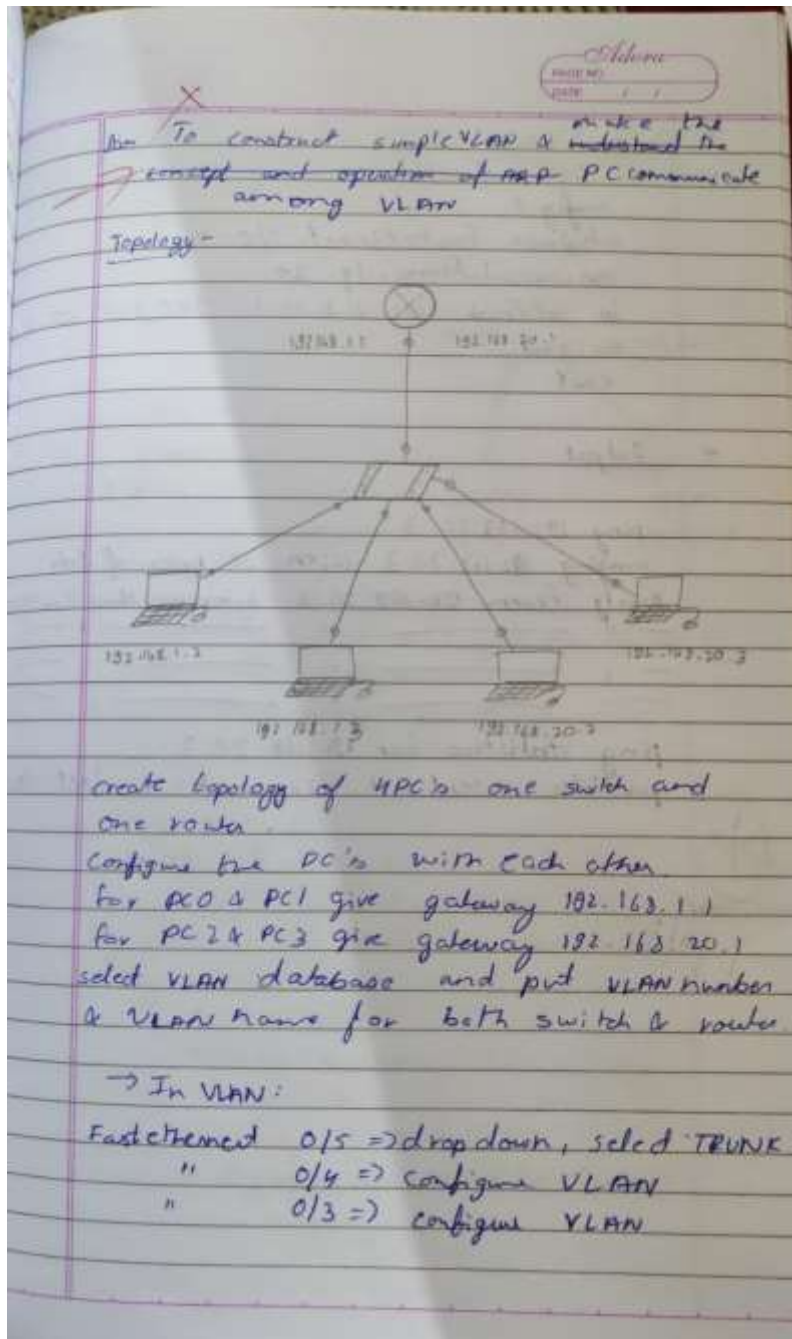 Adora
PAGE NO
DATE / /
Aim To construct simple VLAN & make the understand the
concept and operation of ARP PC communicate
among VLAN
Topology-
192.168.1.1 192.168.20.1
192.168.1.2 192.168.20.3
192.168.1.3 192.168.20.2
create topology of 4PC's one switch and
one router.
Configure the PC's with each other
for PC0 & PC1 give gateway 192.168.1.1
for PC2 & PC3 give gateway 192.168 20.1
select VLAN database and put VLAN number
& VLAN name for both switch & router
→ In VLAN:
Fastethernet 0/5 => drop down, select TRUNK
" 0/4 => configure VLAN
" 0/3 => configure VLAN